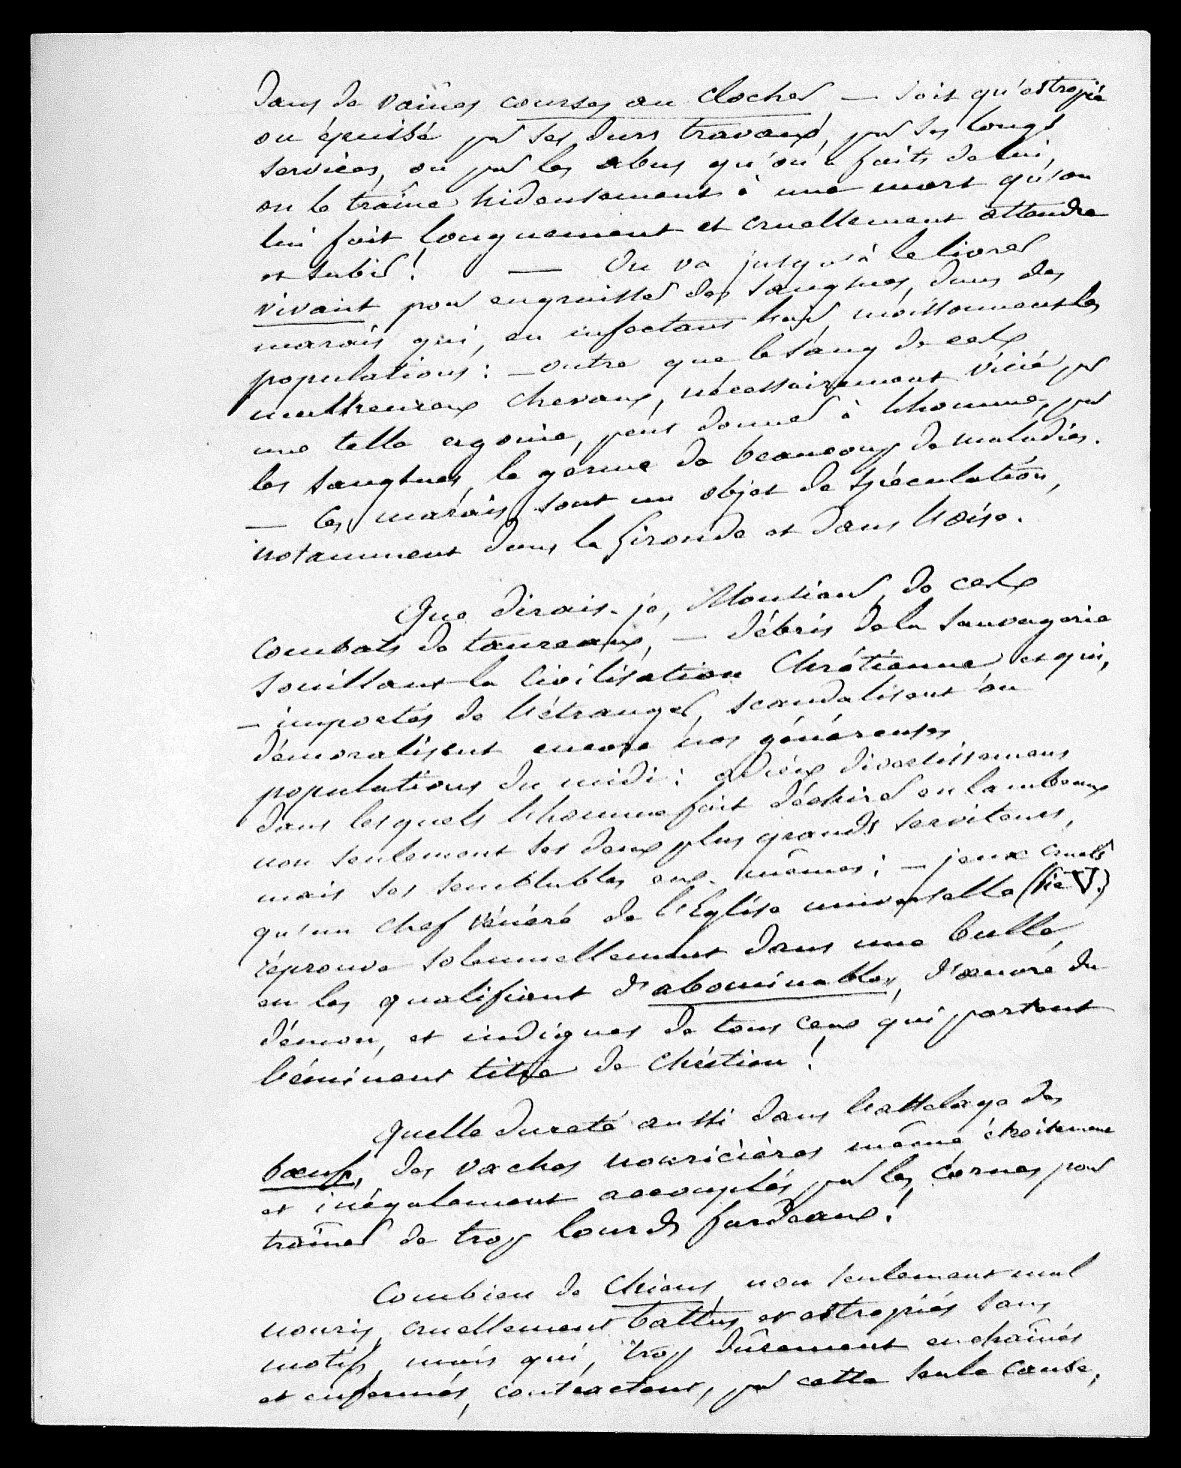 dans de vaines courses au clocher — soit qu'estropié
ou épuisé par ses durs travaux, par ses longs
services, ou par les abus qu'on a faits de lui,
on le traîne hideusement à une mort qu'on
lui fait longuement et cruellement attendre
et subir! — On va jusqu'à le livrer
vivant pour engraisser des sangsues, dans des
marais qui, en infectant l'air, moissonnent les
populations: — outre que le sang de ces
malheureux chevaux, nécessairement vicié par
une telle agonie, peut donner à l'homme, par
les sangsues, le germe de beaucoup de maladies.
— Ces marais sont un objet de spéculation,
notamment dans la Gironde et dans l'Oise.
Que dirais-je, Monsieur, de ces
combats de taureaux, — débris de la sauvagerie
souillant la civilisation Chrétienne et qui,
— importés de l'étranger, scandalisent ou
démoralisent encore nos généreuses
populations du midi: odieux divertissemens
dans lesquels l'homme fait déchirer en lambeaux
non seulement ses deux plus grands serviteurs,
mais ses semblables eux-mêmes; — jeux cruels
qu'un chef vénéré de l'Eglise universelle (Pie V.)
réprouve solennellement dans une bulle,
en les qualifiant d'abominables, d'œuvre du
démon, et indignes de tous ceux qui portent
l'éminent titre de chrétien!
Quelle dureté aussi dans l'attelage des
bœufs, des vaches nourricières même étroitement
et inégalement accouplés par les cornes pour
traîner de trop lourds fardeaux!
Combien de chiens, non seulement mal
nourris, cruellement battus et estropiés sans
motifs, mais qui, trop durement enchaînés
et enfermés, contractent, par cette seule cause,